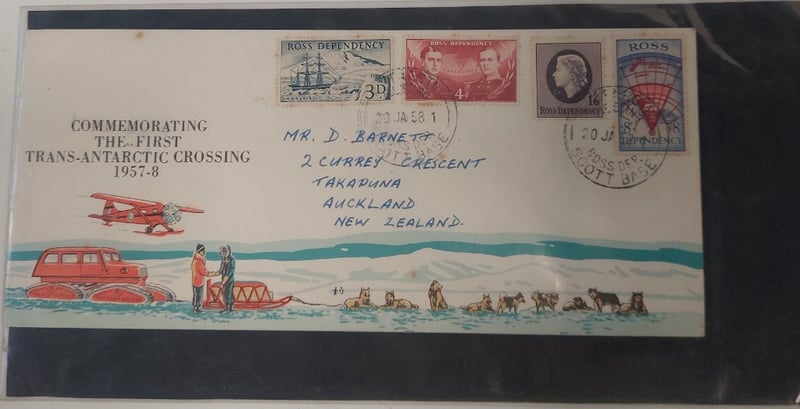 ROSS DEPENDENCY
3D
ROSS DEPENDENCY
4D
1/6
ROSS DEPENDENCY
ROSS
DEPENDENCY
20 JA 58.1
SCOTT BASE
20 JA
ROSS DEP.
SCOTT BASE
COMMEMORATING
THE FIRST
TRANS-ANTARCTIC CROSSING
1957-8
MR. D. BARNETT
2 CURREY CRESCENT
TAKAPUNA
AUCKLAND
NEW ZEALAND.